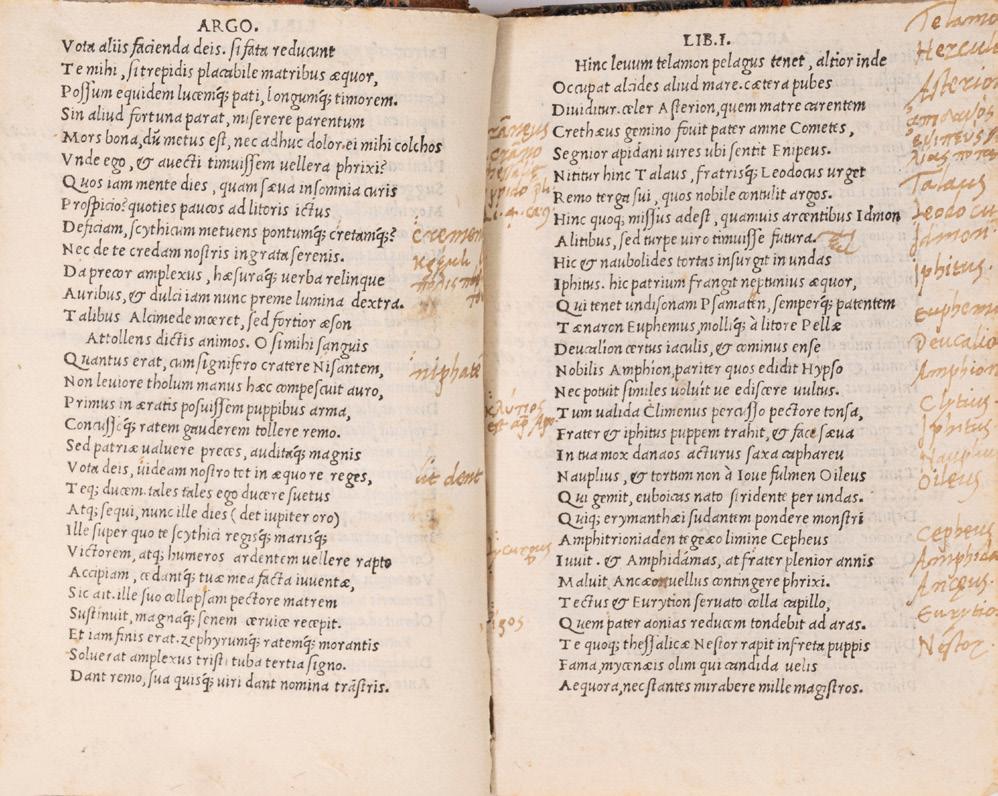 ARGO.
Vota aliis facienda deis. si fata reducunt
Te mihi, si trepidis placabile matribus æquor,
Possum equidem lucemq; pati, longumq; timorem.
Sin aliud fortuna parat, miserere parentum
Mors bona, dũ metus est, nec adhuc dolor. ei mihi colchos
Vnde ego, & auecti timuissem vellera phrixi?
Quos iam mente dies, quam sæua insomnia curis
Prospicio? quoties paucos ad litoris ictus
Deficiam, scythicum metuens pontumq; cretamq;?
Nec de te credam nostris ingrata serenis.
Da precor amplexus, hæsuraq; verba relinque
Auribus, & dulci iam nunc preme lumina dextra.
Talibus Alcimede mœret, sed fortior æson
Attollens dictis animos. O si mihi sanguis
Quantus erat, cum signifero cratere Nisantem,
Non leuiore tholum manus hæc compescuit auro,
Primus in æratis posuissem puppibus arma,
Concussoq; ratem gauderem tollere remo.
Sed patriæ valuere preces, auditaq; magnis
Vota deis, uideam nostro tot in æquore reges,
Teq; ducem. tales tales ego ducere suetus
Atq; sequi, nunc ille dies (det iupiter oro)
Ille super quo te scythici regisq; marisq;
Victorem, atq; humeros ardentem vellere rapto
Accipiam, cedantq; tuæ mea facta iuuentæ,
Sic ait. ille suo collapsam pectore matrem
Sustinuit, magnaq; senem ceruice recepit.
Et iam finis erat. zephyrumq; ratemq; morantis
Soluerat amplexus tristi tuba tertia signo.
Dant remo, sua quisq; viri dant nomina trãstris.
niphate
ut dent
LIB. I.
Hinc leuum telamon pelagus tenet, altior inde
Occupat alcides aliud mare. cætera pubes
Diuiditur. celer Asterion, quem matre carentem
Crethæus gemino fouit pater amne Cometes,
Segnior apidani uires ubi sentit Enipeus.
Nititur hinc Talaus, fratrisq; Leodocus urget
Remo terga sui, quos nobile contulit argos.
Hinc quoq; missus adest, quamuis arcentibus Idmon
Alitibus, sed turpe viro timuisse futura.
Hic & naubolides tortas insurgit in undas
Iphitus. hic patrium frangit neptunius æquor,
Qui tenet undisonam Psamaten, semperq; patentem
Tænaron Euphemus, molliq; à litore Pellæ
Deucalion certus iaculis, & cominus ense
Nobilis Amphion, pariter quos edidit Hypso
Nec potuit similes voluit ve ediscere uultus.
Tum valida Climenus percusso pectore tonsa,
Frater & iphitus puppem trahit, & face sæua
In tua mox danaos acturus saxa caphareu
Nauplius, & tortum non à Ioue fulmen Oileus
Qui gemit, euboicas nato stridente per undas.
Quiq; erymanthæi sudantem pondere monstri
Amphitrioniaden tegæo limine Cepheus
Iuuit. & Amphidamas, at frater plenior annis
Maluit Ancæo vellus contingere phrixi.
Tectus & Eurytion seruato colla capillo,
Quem pater aonias reducem tondebit ad aras.
Te quoq; thessalicæ Nestor rapit in freta puppis
Fama, mycenæis olim qui candida uelis
Aequora, nec stantes mirabere mille magistros.
Talaus
Idmon.
Iphitus.
Clytius.
Iphitus
Oileus
Cepheus
Anceus.
Nestor.